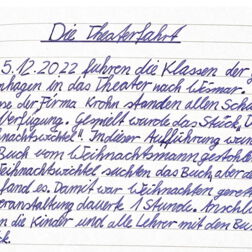 Die Theaterfahrt
5.12.2022 fuhren die Klassen der
nhagen in das Theater nach Weimar.
se der Firma Krohn standen allen Sch
Verfügung. Gespielt wurde das Stück, D
nachtswichtel". In dieser Aufführung wurd
Buch vom Weihnachtsmann gestohl
Weihnachtswichtel suchten das Buch aber de
fand es. Damit war Weihnachten geret
eranstaltung dauerte 1 Stunde. Anschli
n die Kinder und alle Lehrer mit dem Bu
ck.